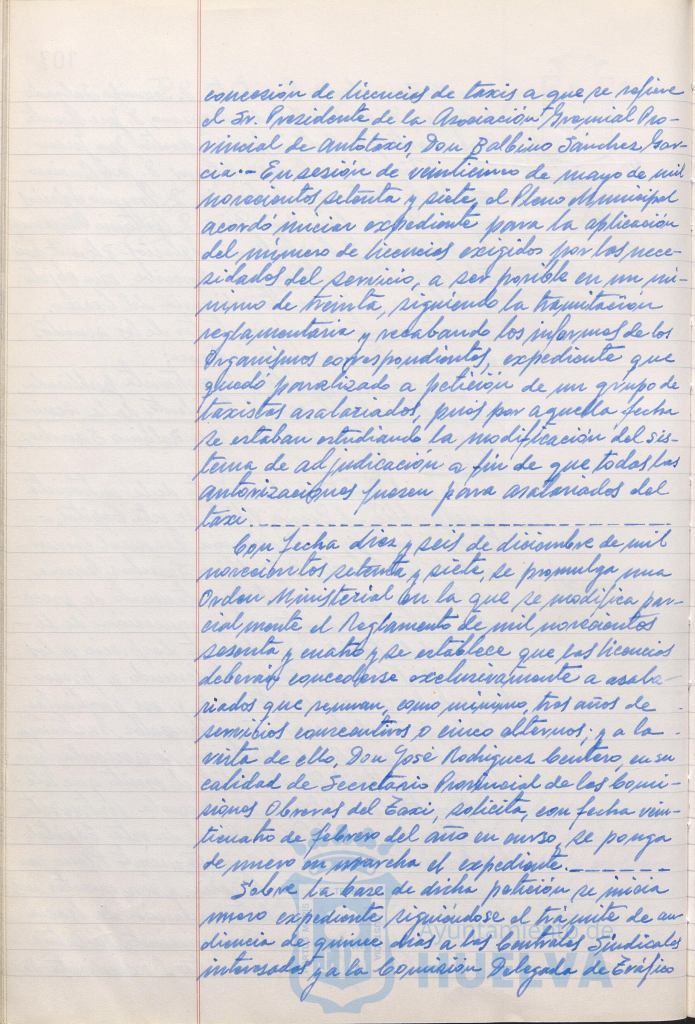 concesión de licencias de taxis a que se refiere
el Sr. Presidente de la Asociación Gremial Pro-
vincial de Autotaxis, Don Balbino Sánchez Gar-
cia.- En sesión de veinticinco de mayo de mil
novecientos setenta y siete, el Pleno Municipal
acordó iniciar expediente para la aplicación
del número de licencias exigidos por las nece-
sidades del servicio, a ser posible en un mi-
nimo de treinta, siguiendo la tramitación
reglamentaria y recabando los informes de los
Organismos correspondientes, expediente que
quedó paralizado a petición de un grupo de
taxistas asalariados, pues por aquella fecha
se estaban estudiando la modificación del sis-
tema de adjudicación a fin de que todas las
autorizaciones fuesen para asalariados del
taxi.
Con fecha diez y seis de diciembre de mil
novecientos setenta y siete, se promulga una
Orden Ministerial en la que se modifica par-
cialmente el Reglamento de mil novecientos
sesenta y cuatro y se establece que las licencias
deberán concederse exclusivamente a asala-
riados que reunan, como mínimo, tres años de
servicios consecutivos o cinco alternos; y a la
vista de ello, Don José Rodríguez Centeno, en su
calidad de Secretario Provincial de las Comi-
siones Obreras del Taxi, solicita, con fecha vein-
ticuatro de febrero del año en curso, se ponga
de nuevo en marcha el expediente.
Sobre la base de dicha petición se inicia
nuevo expediente siguiéndose el trámite de au-
diencia de quince días a las Centrales Sindicales
interesadas y a la Comisión Delegada de Tráfico
Ayuntamiento de
HUELVA